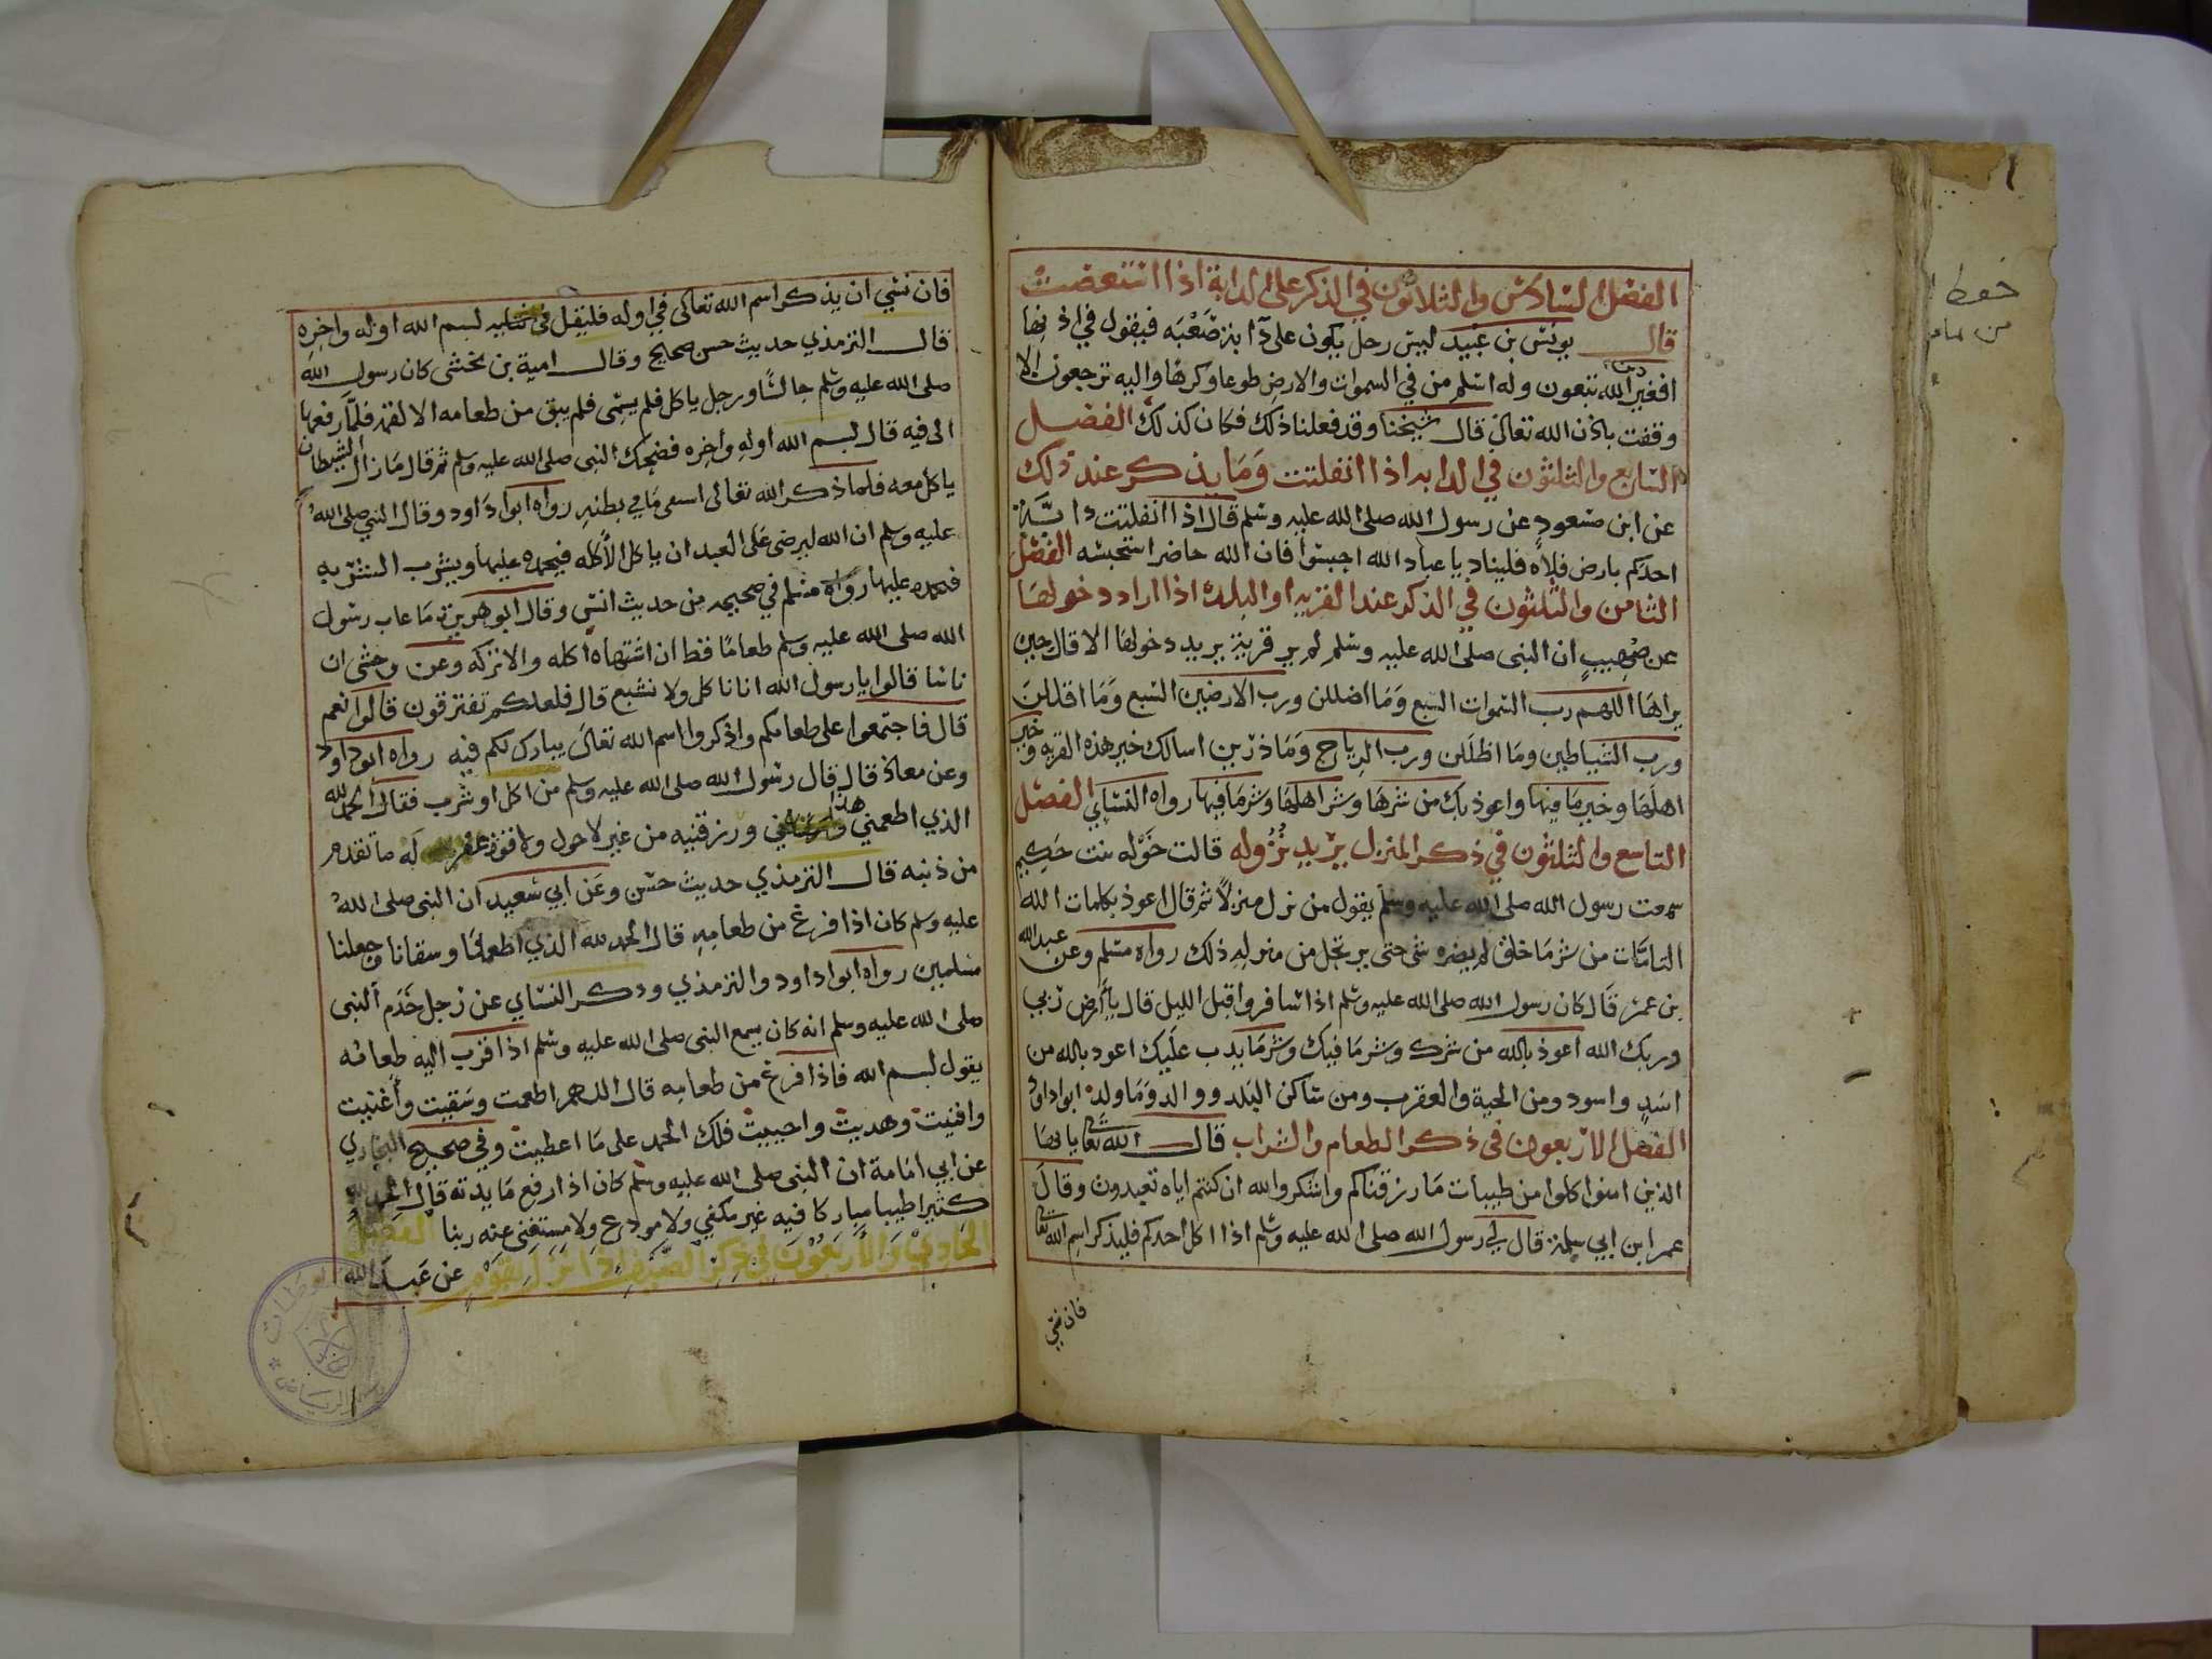 الفصل السادس والثلاثون في الذكر على الدابة اذا استعصت
قال يونس بن عبيد ليس رجل يكون على دابة صعبه فيقول في اذنها
افغير دين الله تبغون وله اسلم من في السموات والارض طوعا وكرها واليه ترجعون الا
وقفت باذن الله تعالى قال شيخنا وقد فعلنا ذلك فكان كذلك الفصل
السابع والثلثون في الدابه اذا انفلتت وما يذكر عند ذلك
عن ابن مسعود عن رسول الله صلى الله عليه وسلم قال اذا انفلتت دابة
احدكم بارض فلاه فليناد يا عباد الله احبسوا فان الله حاضرا ستحبسه الفصل
الثامن والثلثون في الذكر عند القريه او البلده اذا اراد دخولها
عن صهيب ان النبي صلى الله عليه وسلم لم ير قرية يريد دخولها الا قال حين
يراها اللهم رب السموات السبع وما اضللن ورب الارضين السبع وما اقللن
ورب الشياطين وما اظللن ورب الرياح وما ذرين اسالك خير هذه القريه وخير
اهلها وخير ما فيها واعوذ بك من شرها وشر اهلها وشر ما فيها رواه النساي الفصل
التاسع والثلثون في ذكر المنزل يريد نزوله قالت خوله بنت حكيم
سمعت رسول الله صلى الله عليه وسلم يقول من نزل منزلا ثم قال اعوذ بكلمات الله
التامات من شر ما خلق لم يضره شي حتى يرتحل من منزله ذلك رواه مسلم وعن عبد الله
بن عمر قال كان رسول الله صلى الله عليه وسلم اذا سافر واقبل الليل قال يا ارض ربي
وربك الله اعوذ بالله من شرك وشر ما فيك وشر ما يدب عليك اعوذ بالله من
اسد واسود ومن الحية والعقرب ومن ساكن البلد ووالد وما ولد ابو داود
الفصل الاربعون في ذكر الطعام والشراب قال الله تعالى يا ايها
الذين امنوا كلوا من طيبات ما رزقناكم واشكروا لله ان كنتم اياه تعبدون وقال
عمر ابن ابي سلمة قال لي رسول الله صلى الله عليه وسلم اذا اكل احدكم فليذكر اسم الله تعالى
فان نسي
فان نسي ان يذكر اسم الله تعالى في اوله فليقل بسم الله اوله واخره
قال الترمذي حديث حسن صحيح وقال امية بن مخشى كان رسول الله
صلى الله عليه وسلم جالسا ورجل ياكل فلم يسمى فلم يبق من طعامه الا لقمة فلما رفعها
الى فيه قال بسم الله اوله واخره فضحك النبي صلى الله عليه وسلم ثم قال ما زال الشيطان
ياكل معه فلما ذكر الله تعالى اسعى ما في بطنه رواه ابوا داود وقال النبي صلى الله
عليه وسلم ان الله ليرضى على العبد ان ياكل الأكله فيحمده عليها ويشرب الشربه
فيحمده عليها رواه مسلم في صحيحه من حديث انس وقال ابو هريرة ما عاب رسول
الله صلى الله عليه وسلم طعاما قط ان اشتهاه اكله والا تركه وعن وحشى ان
ناسا قالوا يا رسول الله انا ناكل ولا نشبع قال فلعلكم تفترقون قالوا نعم
قال فاجتمعوا على طعامكم واذكروا اسم الله تعالى يبارك لكم فيه رواه ابو داود
وعن معاذ قال قال رسول الله صلى الله عليه وسلم من اكل او شرب فقال الحمد لله
الذي اطعمني هذا ورزقنيه من غير لا حول ولا قوة غفر له ما تقدم
من ذنبه قال الترمذي حديث حسن وعن ابي سعيد ان النبي صلى الله
عليه وسلم كان اذا فرغ من طعامه قال الحمد لله الذي اطعمنا وسقانا وجعلنا
مسلمين رواه ابوا داود والترمذي وذكر النساي عن رجل خدم النبي
صلى الله عليه وسلم انه كان يسمع النبي صلى الله عليه وسلم اذا قرب اليه طعامه
يقول بسم الله فاذا فرغ من طعامه قال اللهم اطعمت وسقيت وأغنيت
واقنيت وهديت واحييت فلك الحمد على ما اعطيت وفي صحيح البخاري
عن ابي امامة ان النبي صلى الله عليه وسلم كان اذا رفع مايدته قال الحمد لله
كثيرا طيبا مباركا فيه غير مكفي ولا مودع ولا مستغنى عنه ربنا الفصل
الحادي والاربعون في ذكر الضيف اذا نزل بقوم عن عبد الله